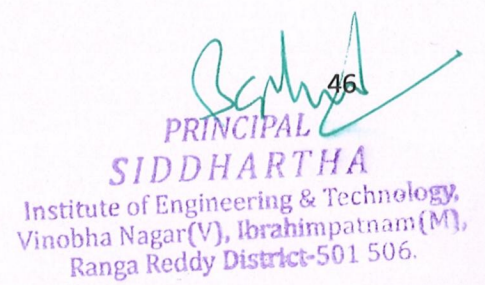 46
PRINCIPAL
SIDDHARTHA
Institute of Engineering & Technology,
Vinobha Nagar(V), Ibrahimpatnam(M),
Ranga Reddy District-501 506.